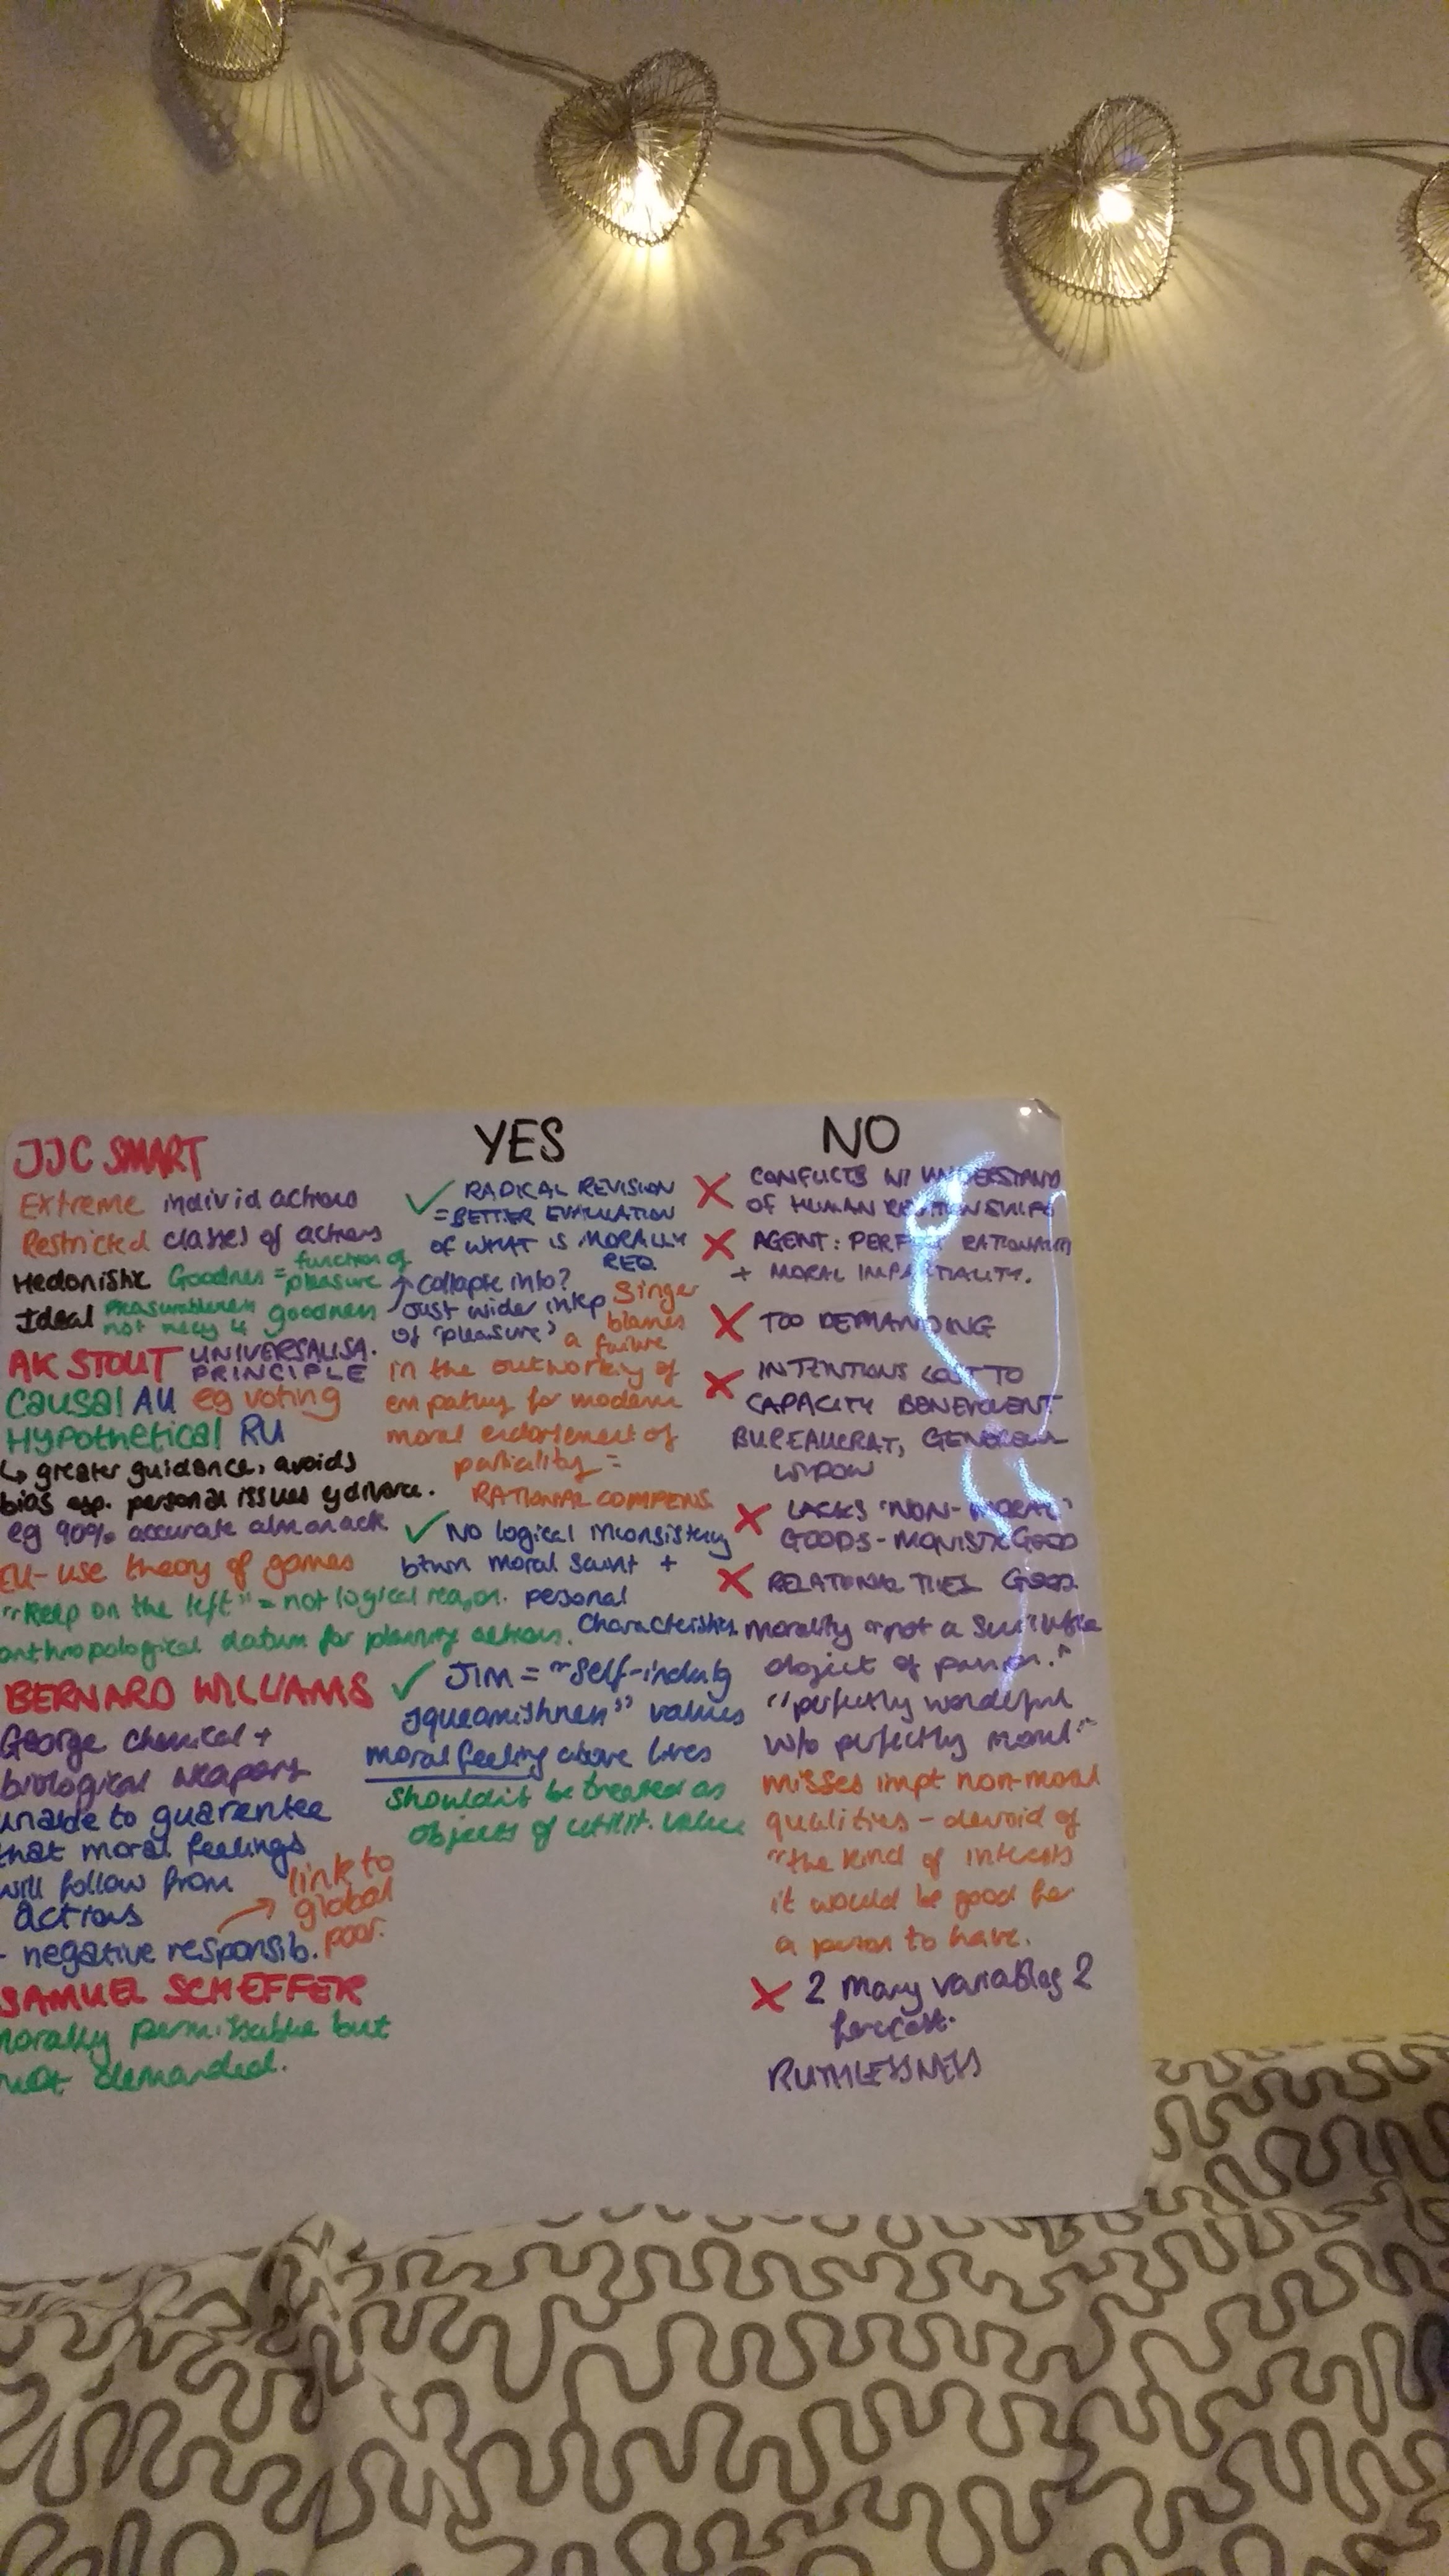 JJC SMART
Extreme individ actions
Restricted classes of actions
Hedonistic Goodness = function of pleasure
Ideal Pleasurableness not necly = goodness
AK STOUT UNIVERSALISA. PRINCIPLE
Causal AU eg voting
Hypothetical RU
↳ greater guidance, avoids
bias esp. personal issues eg divorce.
eg 90% accurate almanack
EU- use theory of games
"keep on the left" = not logical reason.
anthropological datum for planning actions.
BERNARD WILLIAMS
George chemical +
biological weapons
unable to guarantee
that moral feelings
will follow from
actions
- negative responsib.
→ link to
global
poor.
SAMUEL SCHEFFER
morally permissable but
not demanded.
YES
✓ RADICAL REVISION
= BETTER EVALUATION
OF WHAT IS MORALLY
REQ
↗ collapse into?
Just wider interp
of 'pleasure'
Singer
blames
a failure
in the outworking of
empathy for modern
moral endorsement of
partiality =
RATIONAL COMPENS.
✓ No logical inconsistency
btwn moral saint +
personal
characteristics.
✓ JIM = "Self-indulg
squeamishness" values
moral feeling above lives
shouldn't be treated as
objects of utilit. value
NO
X CONFLICTS W/ UNDERSTAND
OF HUMAN RELATIONSHIPS
X AGENT: PERFECT RATIONALITY
+ MORAL IMPARTIALITY.
X TOO DEMANDING
X INTENTIONS LOST TO
CAPACITY BENEVOLENT
BUREAUCRAT, GENEROUS
WIDOW
X LACKS 'NON-MORAL'
GOODS - MONISTIC GOOD
X RELATIONAL TIES GOOD.
morality "not a suitable
object of passion."
"perfectly wonderful
w/o perfectly moral"
misses impt non-moral
qualities - devoid of
"the kind of interests
it would be good for
a person to have.
X 2 many variables 2
forecast.
RUTHLESSNESS